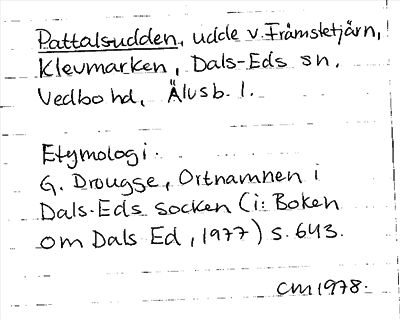 Pattalsudden, udde v. Främstetjärn,
Klevmarken, Dals-Eds sn.
Vedbo hd, Älvsb. l.
Etymologi.
G. Drougge, Ortnamnen i
Dals-Eds socken (i: Boken
om Dals Ed, 1977) s. 643.
CM 1978.